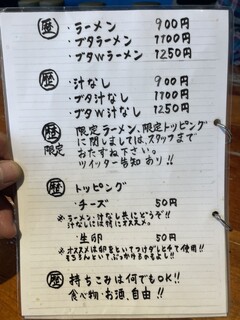 歴 ・ラーメン 900円
・ブタラーメン 1100円
・ブタWラーメン 1250円
歴 ・汁なし 900円
・ブタ汁なし 1100円
・ブタW汁なし 1250円
歴 限定 限定ラーメン、限定トッピング
に関しましては、スタッフまで
おたずね下さい。
ツイッター告知あり!!
歴 トッピング
・チーズ 50円
※ラーメン・汁なし共にどうぞ!!
汁なしには特にオススメ。
・生卵 50円
※オススメは卵をといてつけダレとして使用!!
もちろんといてぶっかけるもよし!!
歴 持ちこみは何でもOK!!
食べ物・お酒、自由!!